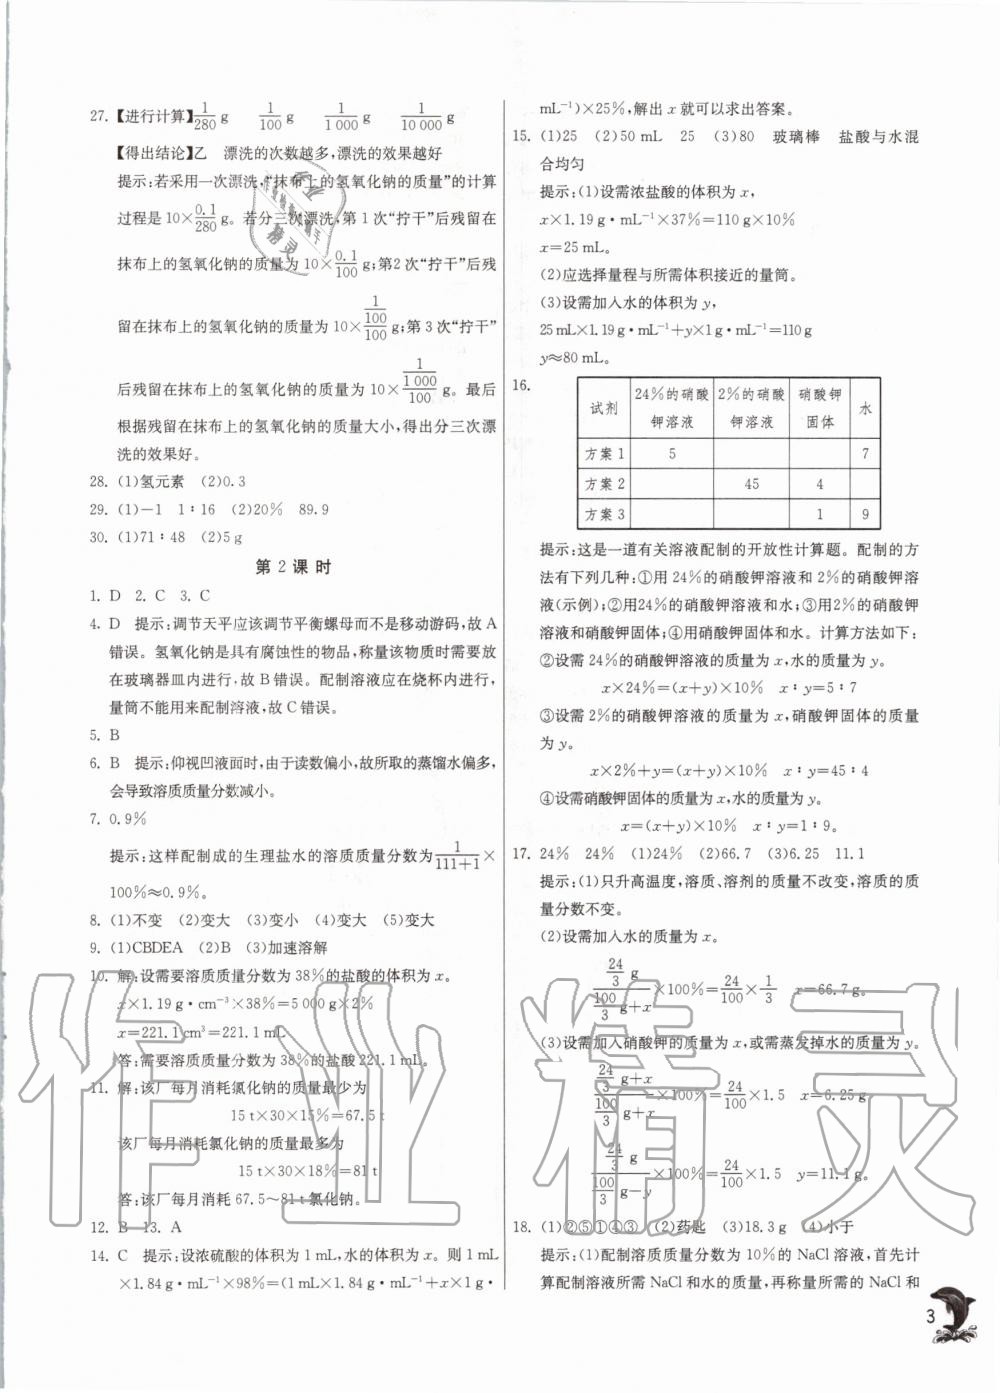 27.【进行计算】1/280 g  1/100 g  1/1 000 g  1/10 000 g
【得出结论】乙  漂洗的次数越多,漂洗的效果越好
提示:若采用一次漂洗,“抹布上的氢氧化钠的质量”的计算
过程是 10×0.1/280 g。若分三次漂洗,第 1 次“拧干”后残留在
抹布上的氢氧化钠的质量为 10×0.1/100 g;第2 次“拧干”后残
留在抹布上的氢氧化钠的质量为 10×(1/100)/100 g;第 3 次“拧干”
后残留在抹布上的氢氧化钠的质量为 10×(1/1 000)/100 g。最后
根据残留在抹布上的氢氧化钠的质量大小,得出分三次漂
洗的效果好。
28. (1)氢元素  (2)0.3
29. (1)-1  1∶16  (2)20%  89.9
30. (1)71∶48  (2)5 g
第 2 课 时
1. D  2. C  3. C
4. D  提示:调节天平应该调节平衡螺母而不是移动游码,故 A
错误。氢氧化钠是具有腐蚀性的物品,称量该物质时需要放
在玻璃器皿内进行,故 B 错误。配制溶液应在烧杯内进行,
量筒不能用来配制溶液,故 C 错误。
5. B
6. B  提示:仰视凹液面时,由于读数偏小,故所取的蒸馏水偏多,
会导致溶质质量分数减小。
7. 0.9%
提示:这样配制成的生理盐水的溶质质量分数为 1/(111+1)×
100%≈0.9%。
8. (1)不变  (2)变大  (3)变小  (4)变大  (5)变大
9. (1)CBDEA  (2)B  (3)加速溶解
10. 解:设需要溶质质量分数为 38%的盐酸的体积为 x。
x×1.19 g·cm⁻³×38%=5 000 g×2%
x=221.1 cm³=221.1 mL
答:需要溶质质量分数为 38%的盐酸 221.1 mL。
11. 解:该厂每月消耗氯化钠的质量最少为
15 t×30×15%=67.5 t
该厂每月消耗氯化钠的质量最多为
15 t×30×18%=81 t
答:该厂每月消耗 67.5～81 t 氯化钠。
12. B  13. A
14. C  提示:设浓硫酸的体积为 1 mL,水的体积为 x。则 1 mL
×1.84 g·mL⁻¹×98%=(1 mL×1.84 g·mL⁻¹+x×1 g·
mL⁻¹)×25%,解出 x 就可以求出答案。
15. (1)25  (2)50 mL  25  (3)80  玻璃棒  盐酸与水混
合均匀
提示:(1)设需浓盐酸的体积为 x,
x×1.19 g·mL⁻¹×37%=110 g×10%
x=25 mL。
(2)应选择量程与所需体积接近的量筒。
(3)设需加入水的体积为 y,
25 mL×1.19 g·mL⁻¹+y×1 g·mL⁻¹=110 g
y≈80 mL。
16.
试剂  24%的硝酸钾溶液  2%的硝酸钾溶液  硝酸钾固体  水
方案 1  5  7
方案 2  45  4
方案 3  1  9
提示:这是一道有关溶液配制的开放性计算题。配制的方
法有下列几种:①用 24%的硝酸钾溶液和 2%的硝酸钾溶
液(示例);②用24%的硝酸钾溶液和水;③用2%的硝酸钾
溶液和硝酸钾固体;④用硝酸钾固体和水。计算方法如下:
②设需 24%的硝酸钾溶液的质量为 x,水的质量为 y。
x×24%=(x+y)×10%  x∶y=5∶7
③设需 2%的硝酸钾溶液的质量为 x,硝酸钾固体的质量
为 y。
x×2%+y=(x+y)×10%  x∶y=45∶4
④设需硝酸钾固体的质量为 x,水的质量为 y。
x=(x+y)×10%  x∶y=1∶9。
17. 24%  24%  (1)24%  (2)66.7  (3)6.25  11.1
提示:(1)只升高温度,溶质、溶剂的质量不改变,溶质的质
量分数不变。
(2)设需加入水的质量为 x。
(24/3 g)/(100/3 g+x)×100%=24/100×1/3  x=66.7 g。
(3)设需加入硝酸钾的质量为 x,或需蒸发掉水的质量为 y。
(24/3 g+x)/(100/3 g+x)×100%=24/100×1.5  x=6.25 g
(24/3 g)/(100/3 g-y)×100%=24/100×1.5  y=11.1 g。
18. (1)②⑤①④③  (2)药匙  (3)18.3 g  (4)小于
提示:(1)配制溶质质量分数为 10%的 NaCl 溶液,首先计
算配制溶液所需 NaCl 和水的质量,再称量所需的 NaCl 和
3
作业精灵